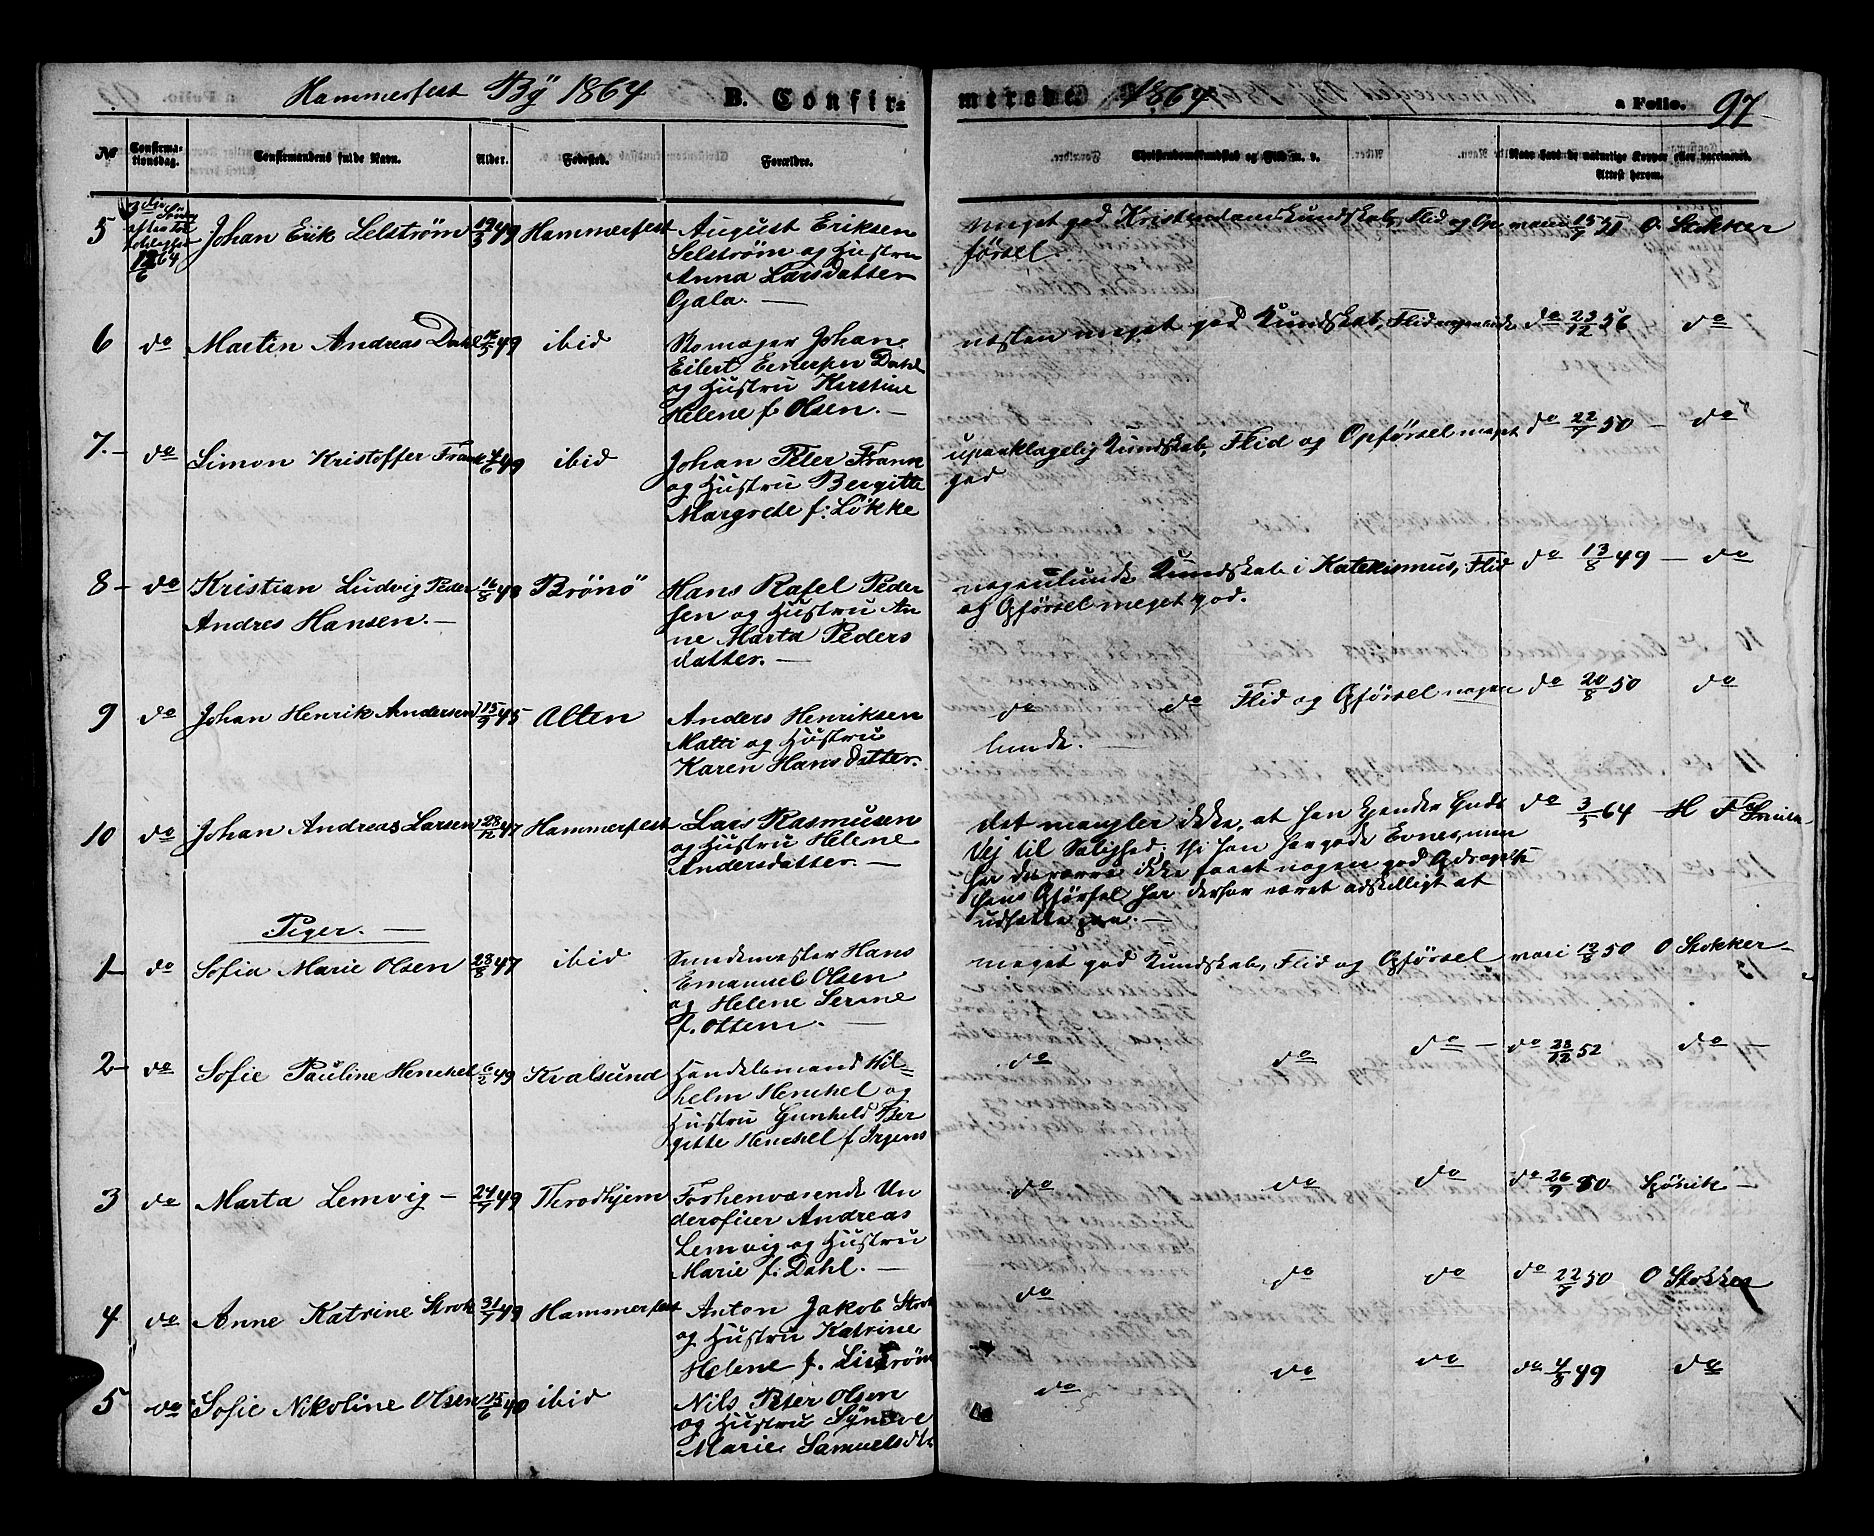 Hammerfest By 1864 B. Confir=
merede 1864 a Folio. 97
№ Confirma-tionsdag. Confirmandens fulde Navn. Alder. Fødested. Forældre. Christendomskundskab og Flid m. v. Attest herom.
5 3die Søndag 12/6 64 Johan Erik Selström 19/3 49 Hammerfest August Eriksen
Selström og Hustru
Anna Larsdatter
Gala. —
meget god Kristendomskundskab, Flid og Op
førsel. 15/7 51 O. Stokker
6 do Martin Andreas Dahl 16/5 49 ibid Skomager Johan
Eilert Dahl
og Hustru Kirstine
Helene f. Olsen. —
næsten meget god Kundskab, Flid do 23/12 56 do
7. do Simon Kristoffer Frank 4/6 49 ibid Johan Peter Frank
og Hustru Bergitte
Margrete f: Løkke
upaaklagelig Kundskab, Flid og Opførsel meget
god do 22/7 50 — do
8 do Kristian Ludvig Peder 16/8 48 Brönö Hans Rafel Peder
Andres Hansen. — sen og Hustru An
ne Marta Peders
datter. —
nogenlunde Kundskab i Katekismus, Flid
og Opførsel meget god. do 13/8 49 — do
9 do Johan Henrik Andersen 15/9 45 Alten Anders Henriksen
Matti og Hustru
Karen Hansdatter.
do do Flid og Opførsel nogen
lunde. — do 20/8 50 do
10 do Johan Andreas Larsen 28/12 47 Hammerfest Lars Rasmusen
og Hustru Helene
Andersdatter. —
det mangler ikke, at han kjender Guds
Vej til Salighed; thi han har gode Evner, men
har desværre ikke faaet nogen god
hans Opførsel har derfor været adskilligt at
udsætte paa. — do 3/5 64 — H
Piger. —
1 do Sofia Marie Olsen 23/8 47 ibid Hans
Emanuel Olsen
og Helene Serine
f. Ottem. —
meget god Kundskab, Flid og Opførsel 12/8 50 O Stokker
2 do Sofie Pauline Henckel 6/2 49 Kvalsund Handelsmand Wil=
helm Henckel og
Hustru Gunhild Ber
gitte Henckel f Irgens
do do do — do 28/12 52 do —
3 do Marta Lemvig — 24/7 49 Throdhjem Forhenværende Un
deroficer Andreas
Lemvig og Hustru
Marie f: Dahl. —
do do do do 26/9 50
4 do Anne Katrine Strok 31/7 49 Hammerfest Anton Jakob Strok
og Hustru Katrine
Helene f.
do do do do 22/7 50 O Stokker
5 do Sofie Nikoline Olsen 15/6 49 ibid Nils Peter Olsen
og Hustru Synneve
Marie Samuelsdtr
do do do do 4/8 49 do